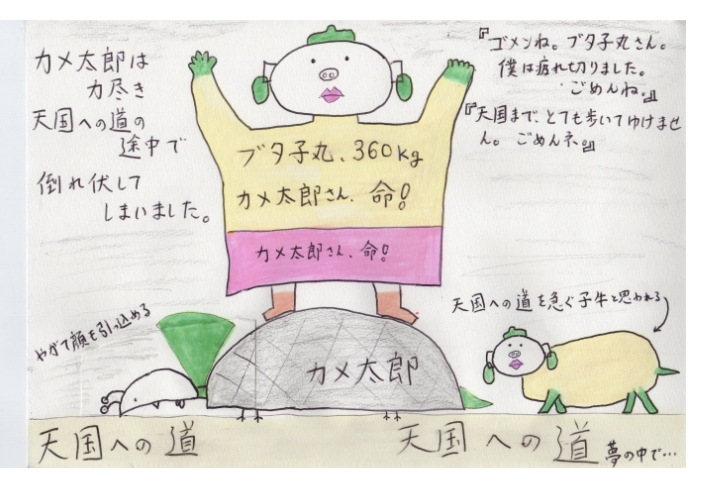 カメ太郎は
力尽き
天国への道の
途中で
倒れ伏して
しまいました。
『ゴメンね。ブタ子丸さん。
僕は疲れ切りました。
ごめんね。』
『天国まで、とても歩いてゆけませ
ん。ごめんネ。』
ブタ子丸、360kg
カメ太郎さん、命!
カメ太郎さん、命!
天国への道を急ぐ子牛と思われる
やがて顔を引っ込める
カメ太郎
天国への道
天国への道
夢の中で…